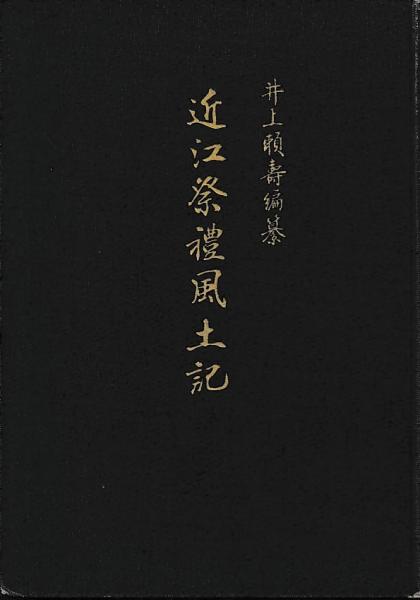 井上頼壽編纂
近江祭禮風土記